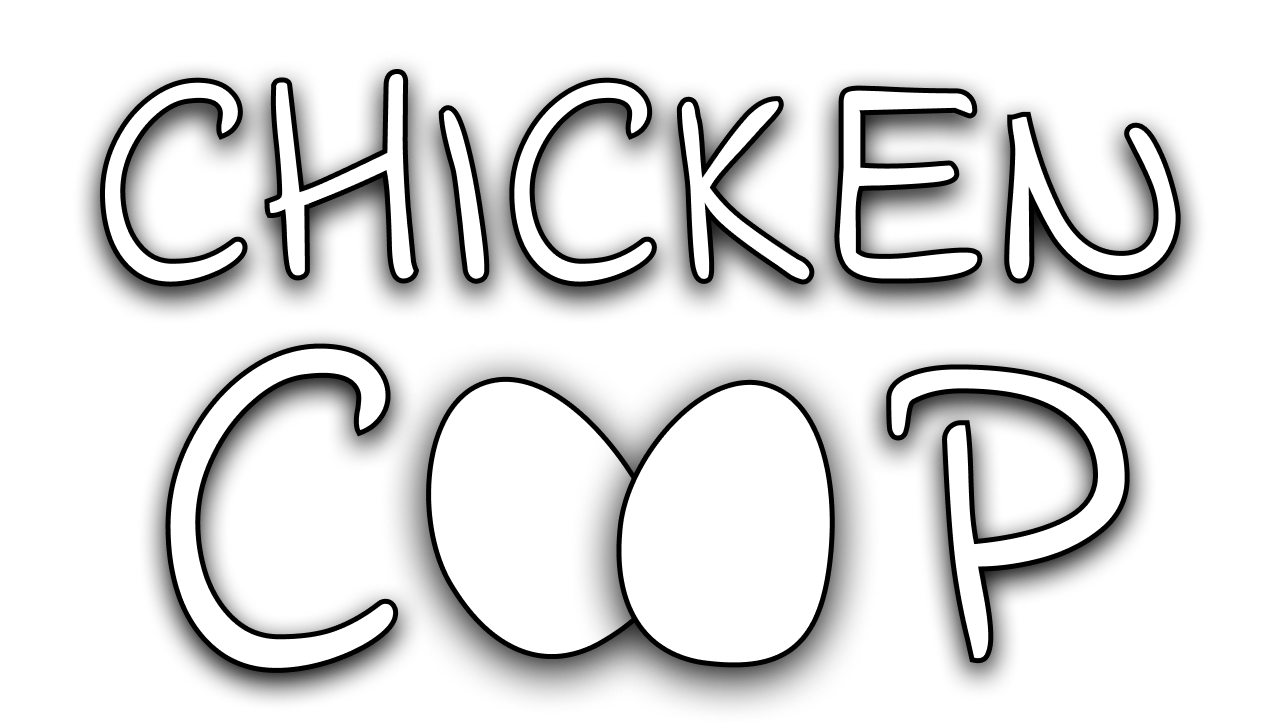 CHICKEN
COOP